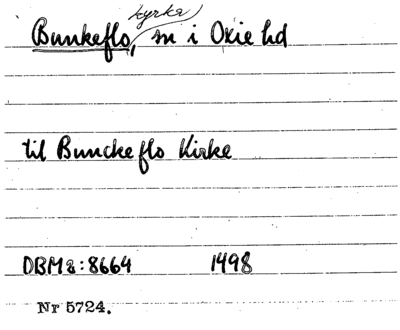 kyrka
Bunkeflo, sn i Oxie hd
til Bunckeflo Kirke
DBM2:8664 1498
Nr 5724.